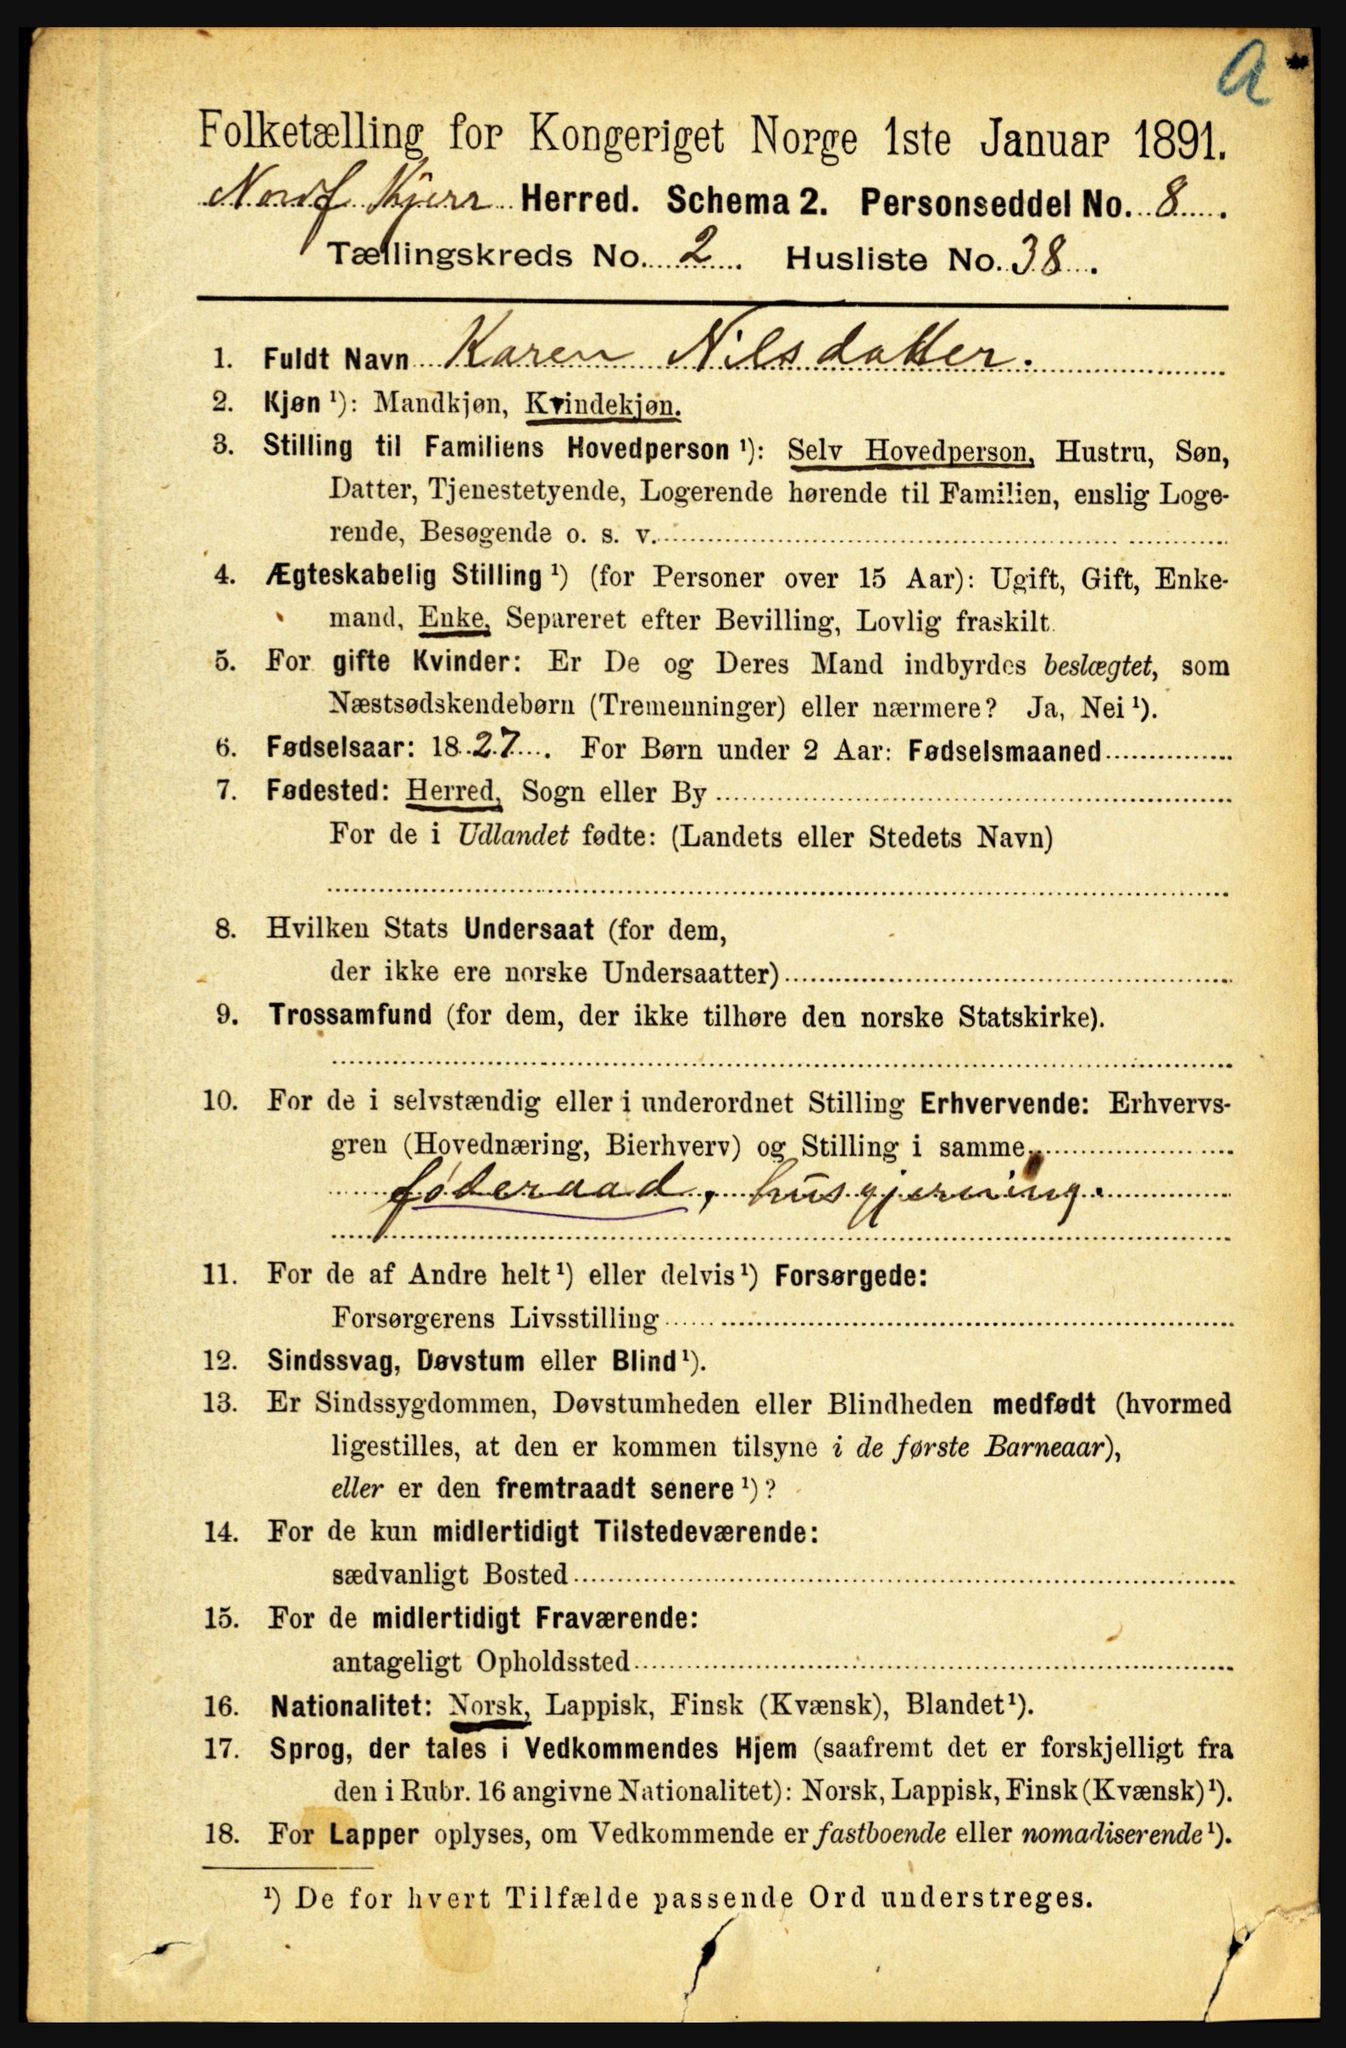 a
Folketælling for Kongeriget Norge 1ste Januar 1891.
Herred. Schema 2. Personseddel No. 8.
Tællingskreds No. 2. Husliste No. 38.
1. Fuldt Navn Karen Nilsdatter.
2. Kjøn ¹): Mandkjøn, Kvindekjøn.
3. Stilling til Familiens Hovedperson ¹): Selv Hovedperson, Hustru, Søn,
Datter, Tjenestetyende, Logerende hørende til Familien, enslig Loge-
rende, Besøgende o. s. v.
4. Ægteskabelig Stilling ¹) (for Personer over 15 Aar): Ugift, Gift, Enke-
mand, Enke, Separeret efter Bevilling, Lovlig fraskilt
5. For gifte Kvinder: Er De og Deres Mand indbyrdes beslægtet, som
Næstsødskendebørn (Tremenninger) eller nærmere? Ja, Nei ¹).
6. Fødselsaar: 1827. For Børn under 2 Aar: Fødselsmaaned
7. Fødested: Herred, Sogn eller By
For de i Udlandet fødte: (Landets eller Stedets Navn)
8. Hvilken Stats Undersaat (for dem,
der ikke ere norske Undersaatter)
9. Trossamfund (for dem, der ikke tilhøre den norske Statskirke).
10. For de i selvstændig eller i underordnet Stilling Erhvervende: Erhvervs-
gren (Hovednæring, Bierhverv) og Stilling i samme
føderaad, husgjerning.
11. For de af Andre helt ¹) eller delvis ¹) Forsørgede:
Forsørgerens Livsstilling
12. Sindssvag, Døvstum eller Blind ¹).
13. Er Sindssygdommen, Døvstumheden eller Blindheden medfødt (hvormed
ligestilles, at den er kommen tilsyne i de første Barneaar),
eller er den fremtraadt senere ¹)?
14. For de kun midlertidigt Tilstedeværende:
sædvanligt Bosted
15. For de midlertidigt Fraværende:
antageligt Opholdssted
16. Nationalitet: Norsk, Lappisk, Finsk (Kvænsk), Blandet ¹).
17. Sprog, der tales i Vedkommendes Hjem (saafremt det er forskjelligt fra
den i Rubr. 16 angivne Nationalitet): Norsk, Lappisk, Finsk (Kvænsk) ¹).
18. For Lapper oplyses, om Vedkommende er fastboende eller nomadiserende ¹).
¹) De for hvert Tilfælde passende Ord understreges.